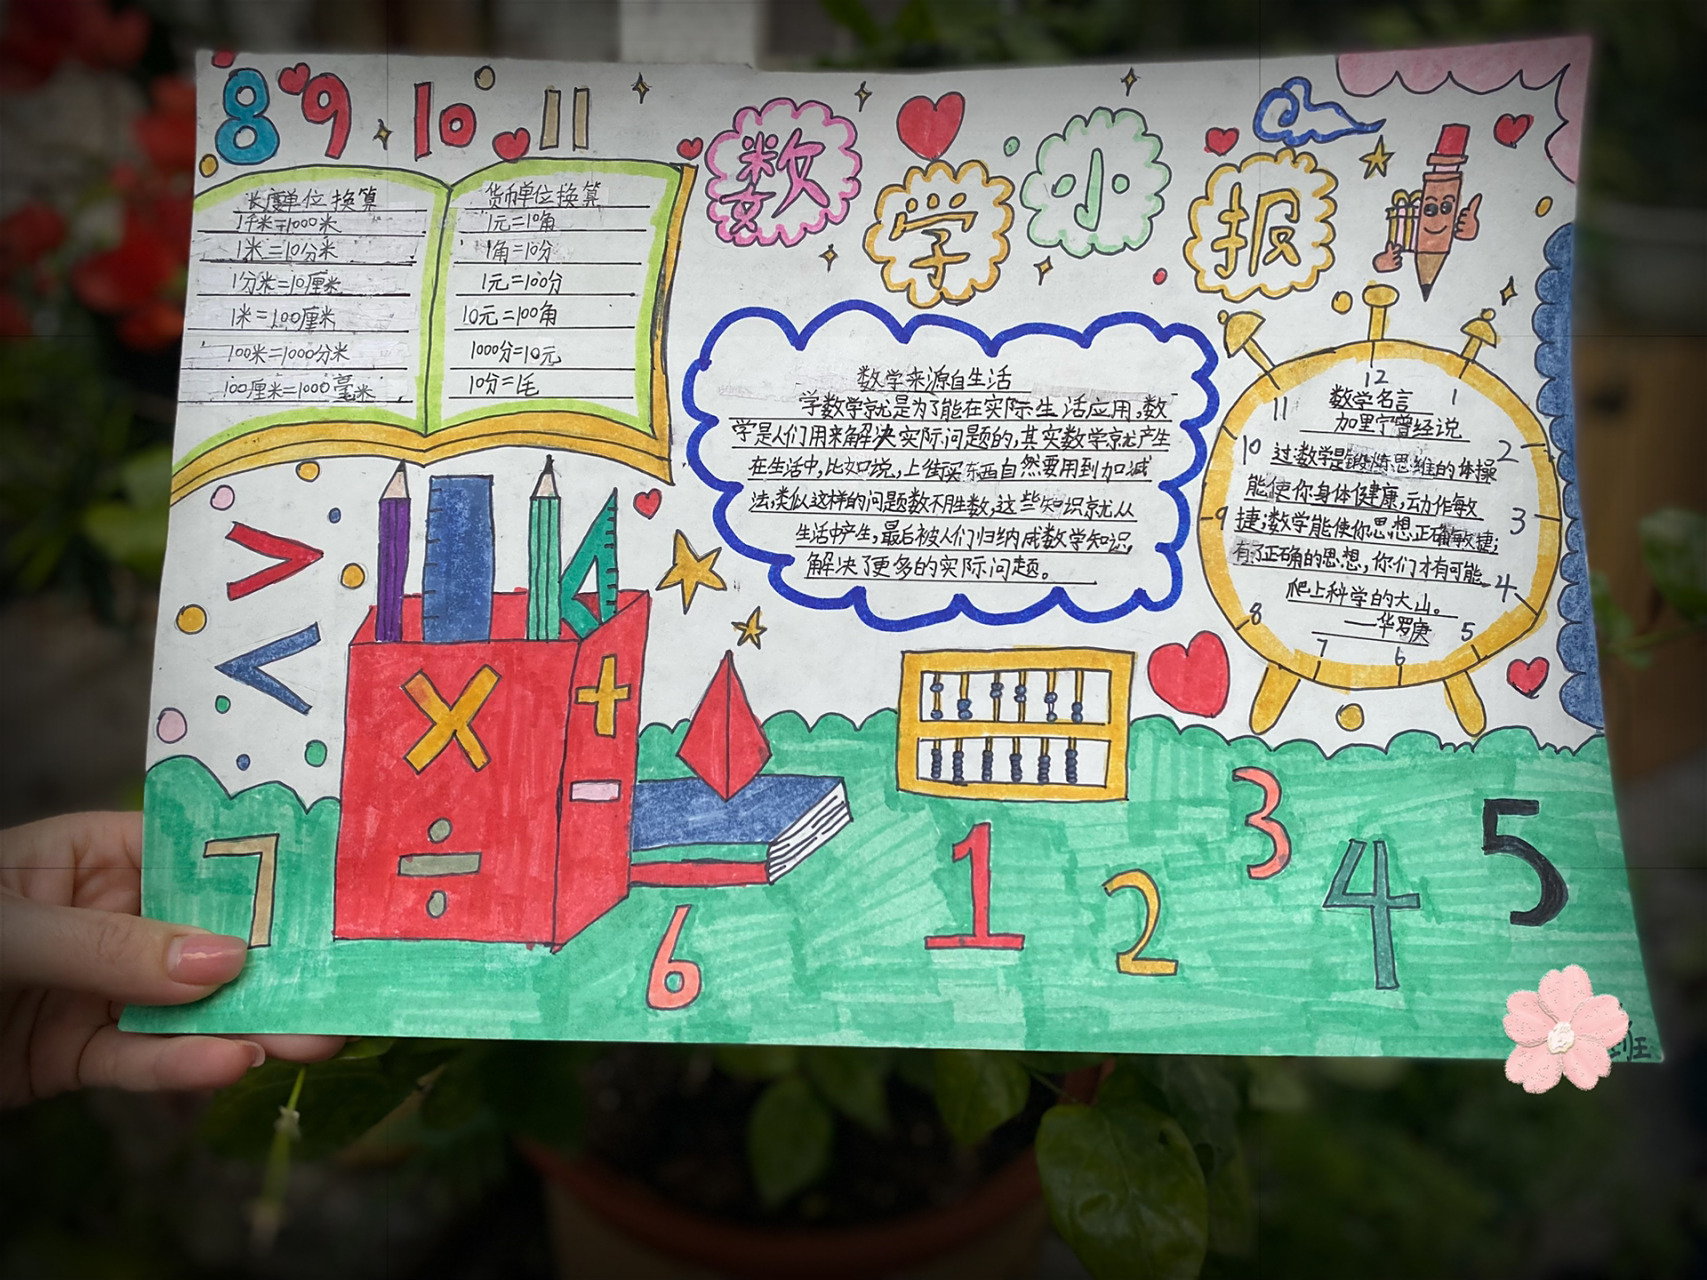 8 9 10 11
数学小报
长度单位换算
1千米=1000米
1米=10分米
1分米=10厘米
1米=100厘米
100米=1000分米
100厘米=1000毫米
货币单位换算
1元=10角
1角=10分
1元=100分
10元=100角
1000分=10元
10分=1毛
数学来源自生活
学数学就是为了能在实际生活应用,数
学是人们用来解决实际问题的,其实数学就产生
在生活中,比如说,上街买东西自然要用到加减
法,类似这样的问题数不胜数,这些知识就从
生活中产生,最后被人们归纳成数学知识,
解决了更多的实际问题。
12
1
2
3
4
5
6
7
8
9
10
11
数学名言
加里宁曾经说
过:数学是锻炼思维的体操
能使你身体健康,动作敏
捷;数学能使你思想正确敏捷;
有了正确的思想,你们才有可能
爬上科学的大山。
——华罗庚
>
<
× + − ÷
7
6
1
2
3
4
5
班